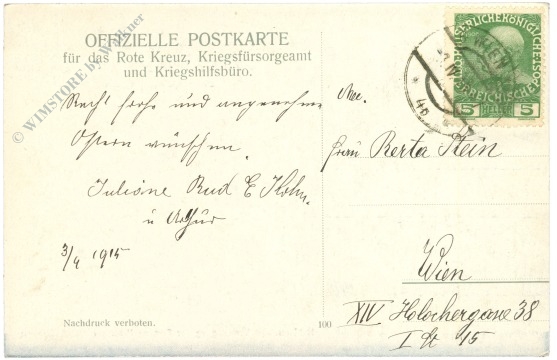 OFFIZIELLE POSTKARTE
für das Rote Kreuz, Kriegsfürsorgeamt
und Kriegshilfsbüro.
Recht frohe und angenehme
Ostern wünschen
Juliane Rud E Hohn
u Arthur
3/4 1915
Nachdruck verboten.
100
Frau Berta Stein
Wien
XIV Holochergasse 38
I St 15
KAISERLICHE KÖNIGLICHE
ÖSTERREICHISCHE POST
5 HELLER 5
WIEN
© WIMSTORE by Walkner